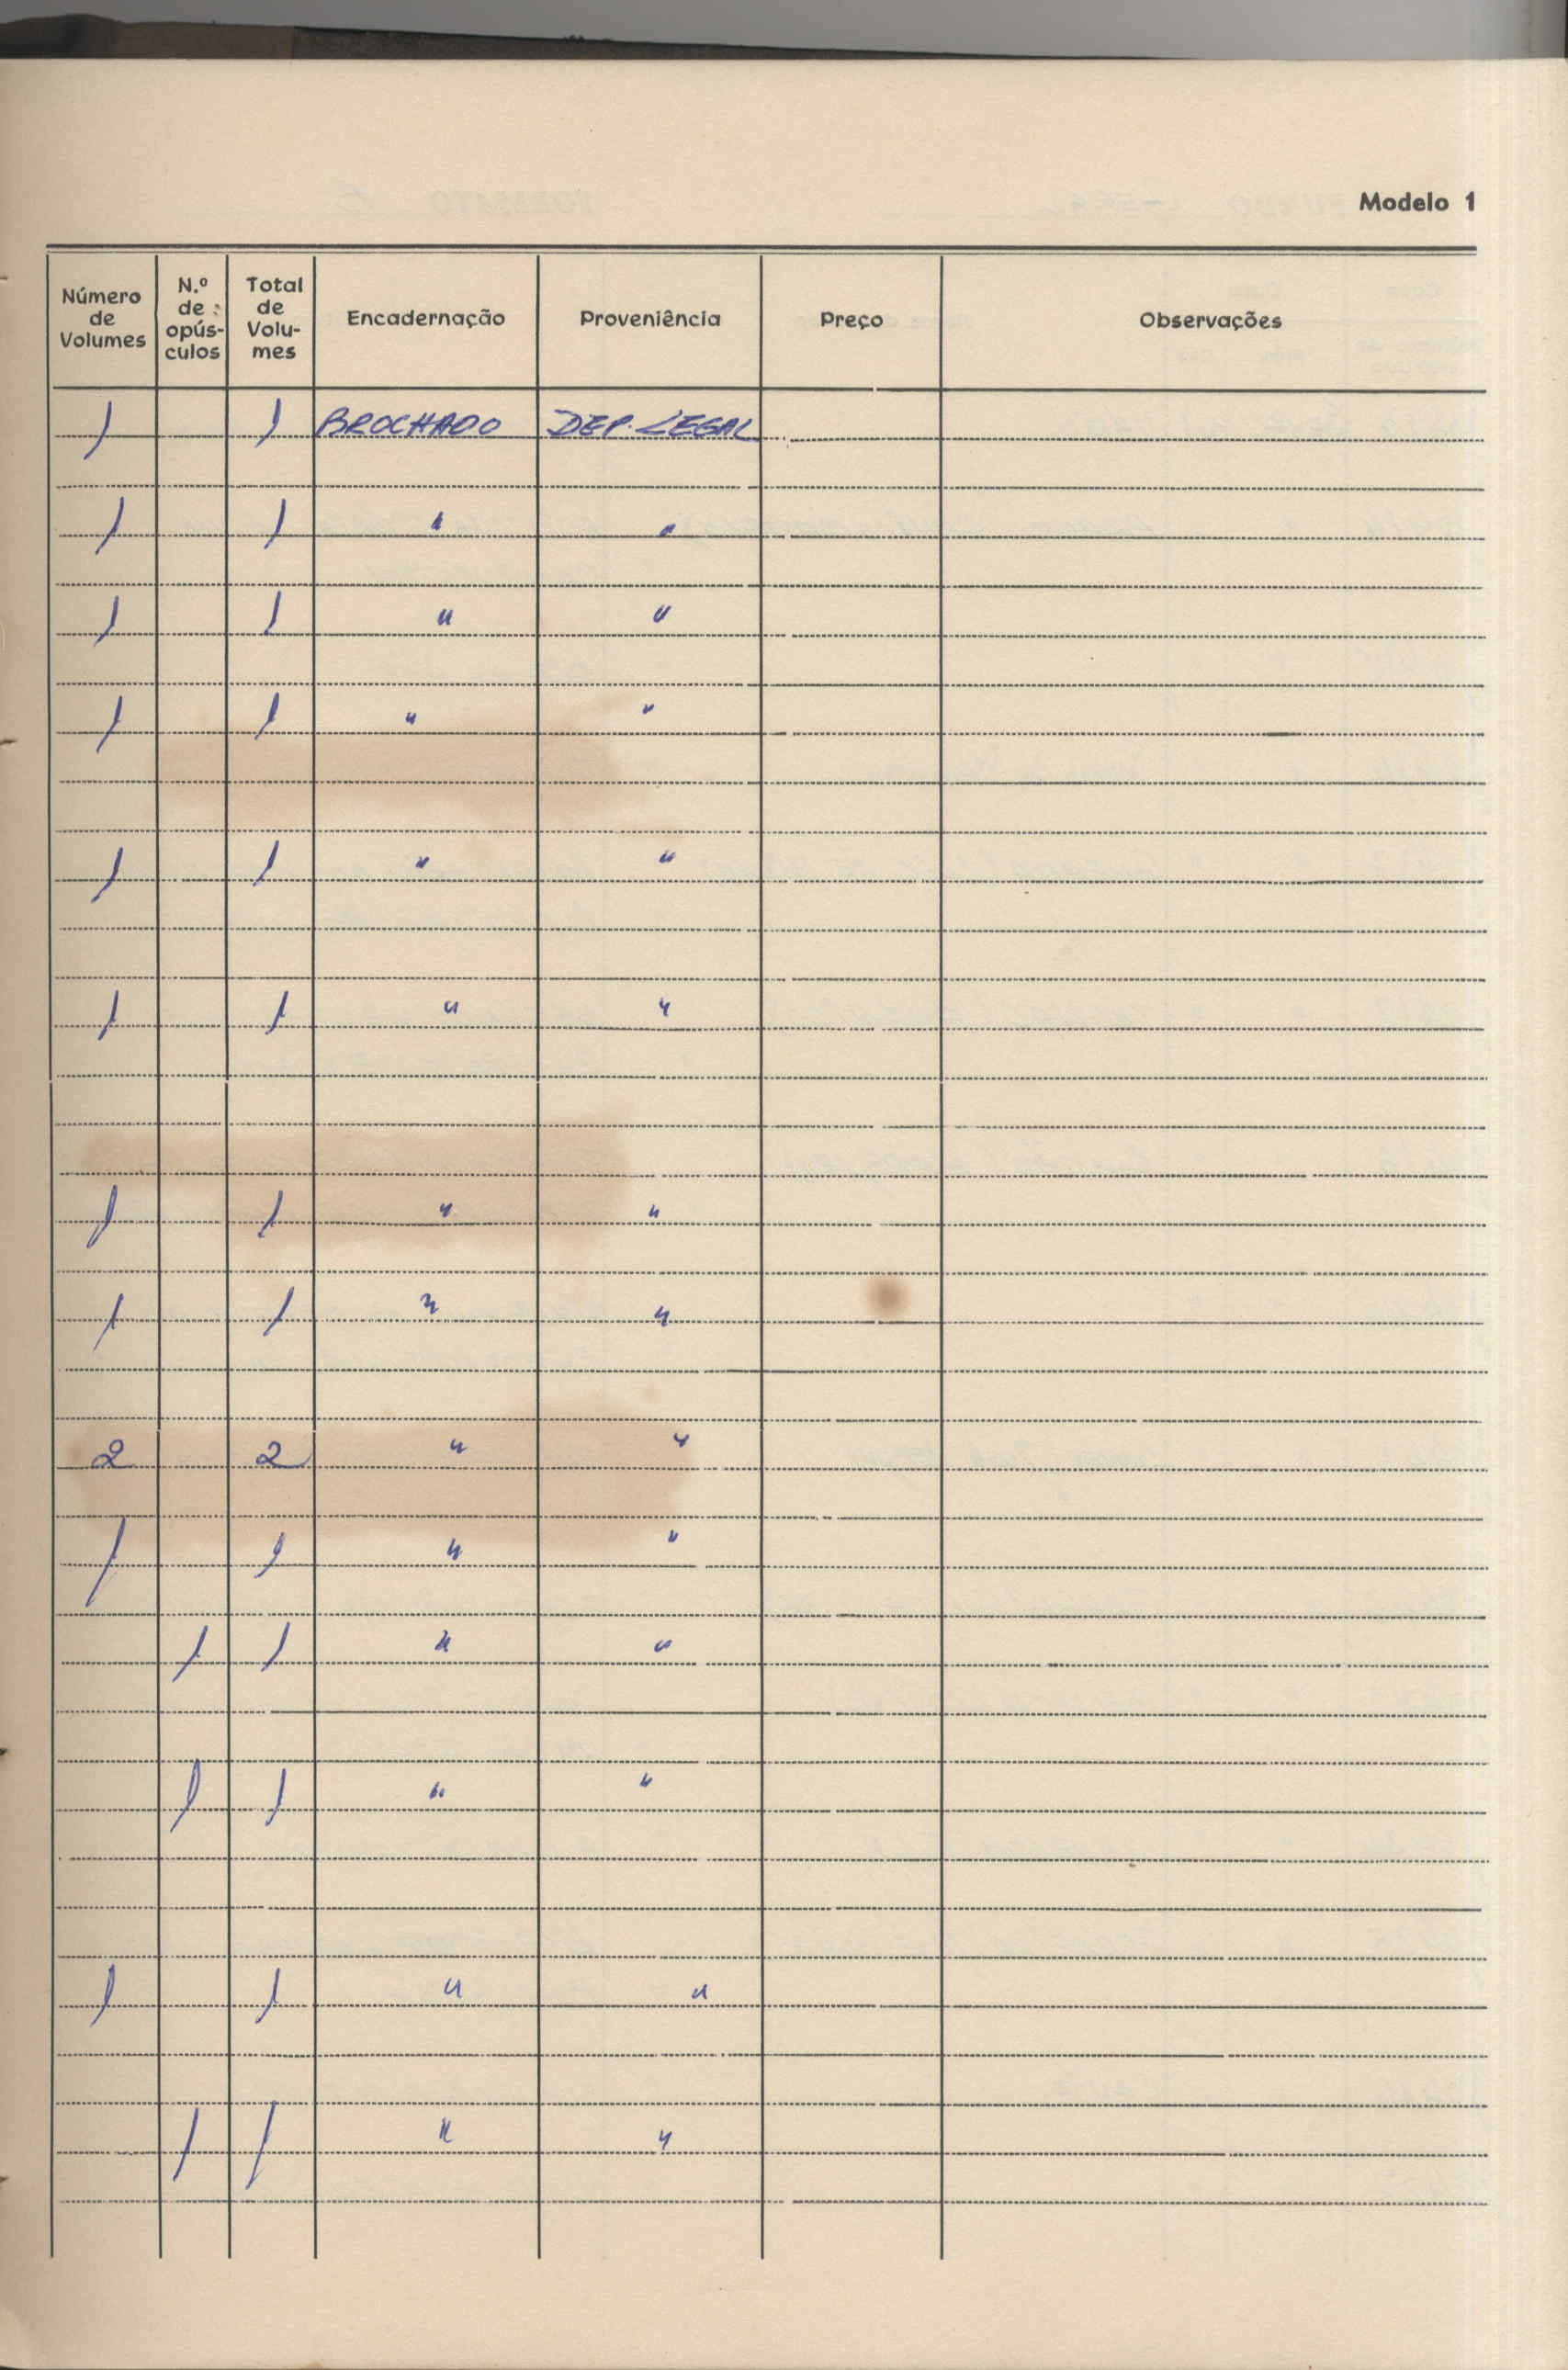 Modelo 1
Número de Volumes | N.º de opúsculos | Total de Volumes | Encadernação | Proveniência | Preço | Observações
1 | | 1 | BROCHADO | DEP. LEGAL
1 | | 1 | " | "
1 | | 1 | " | "
1 | | 1 | " | "
1 | | 1 | " | "
1 | | 1 | " | "
1 | | 1 | " | "
1 | | 1 | " | "
2 | | 2 | " | "
1 | | 1 | " | "
| 1 | 1 | " | "
| 1 | 1 | " | "
1 | | 1 | " | "
| 1 | 1 | " | "